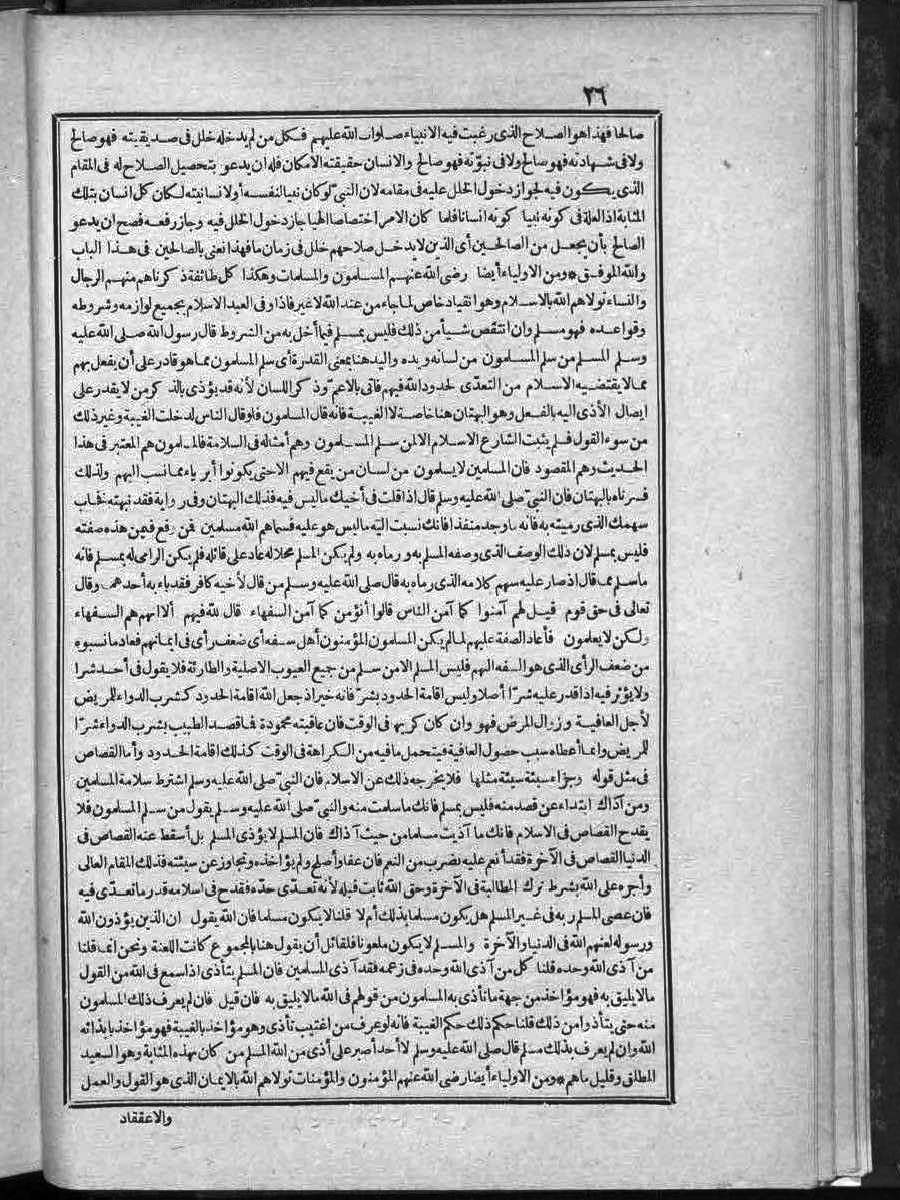 ٢٦
صالحا فهذا هو الصلاح الذى رغبت فيه الانبياء صلوات الله عليهم فكل من لم يدخله خلل فى صديقيته فهو صالح
ولا فى شهادته فهو صالح ولا فى نبوّته فهو صالح والانسان حقيقته الامكان فله ان يدعو بتحصيل الصلاح له فى المقام
الذى يكون فيه لجواز دخول الخلل عليه فى مقامه لان النبى لو كان نبيا لنفسه أولانسانيته لكان كل انسان بتلك
المثابة اذ العلة فى كونه نبيا كونه انسانا فلما كان الامر اختصاصا الهيا جاز دخول الخلل فيه وجاز رفعه فصح ان يدعو
الصالح بأن يجعل من الصالحين أى الذين لا يدخل صلاحهم خلل فى زمان ما فهذا نعنى بالصالحين فى هذا الباب
والله الموفق * ومن الاولياء أيضا رضى الله عنهم المسلمون والمسلمات وهكذا كل طائفة ذكرناهم منهم الرجال
والنساء تولاهم الله بالاسلام وهو انقياد خاص لما جاء من عند الله لا غير فاذا وفى العبد الاسلام بجميع لوازمه وشروطه
وقواعده فهو مسلم وان انتقص شيأ من ذلك فليس بمسلم فيما أخل به من الشروط قال رسول الله صلى الله عليه
وسلم المسلم من سلم المسلمون من لسانه ويده واليد هنا بمعنى القدرة أى سلم المسلمون مما هو قادر على أن يفعل بهم
مما لا يقتضيه الاسلام من التعدّى لحدود الله فيهم فاتى بالاعم وذكر اللسان لأنه قد يؤذى بالذكر من لا يقدر على
ايصال الأذى اليه بالفعل وهو البهتان هنا خاصة لا الغيبة فانه قال المسلمون فلو قال الناس لدخلت الغيبة وغير ذلك
من سوء القول فلم يثبت الشارع الاسلام الا لمن سلم المسلمون وهم أمثاله فى السلامة فالمسلمون هم المعتبر فى هذا
الحديث وهم المقصود فان المسلمين لا يسلمون من لسان من يقع فيهم الا حتى يكونوا أبرياء مما نسب اليهم ولذلك
فسرناه بالبهتان فان النبى صلى الله عليه وسلم قال اذا قلت فى أخيك ما ليس فيه فذلك البهتان وفى رواية فقد بهته نخاب
سهمك الذى رميته به فانه ما وجد منفذا فانك نسبت اليه ما ليس هو عليه فسماهم الله مسلمين فمن وقع فيمن هذه صفته
فليس بمسلم لان ذلك الوصف الذى وصفه المسلم به ورماه به ولم يكن المسلم محلا له عاد على قائله فلم يكن الرامى له بمسلم فانه
ما سلم مما قال اذ صار عليه سهم كلامه الذى رماه به قال صلى الله عليه وسلم من قال لأخيه كافر فقد باء به أحدهما وقال
تعالى فى حق قوم قيل لهم آمنوا كما آمن الناس قالوا أنؤمن كما آمن السفهاء قال الله فيهم ألا انهم هم السفهاء
ولكن لا يعلمون فأعاد الصفة عليهم لما لم يكن المسلمون المؤمنون أهل سفه أى ضعف رأى فى ايمانهم فعاد ما نسبوه
من ضعف الرأى الذى هو السفه اليهم فليس المسلم الا من سلم من جميع العيوب الاصلية والطارئة فلا يقول فى أحد شرا
ولا يؤثر فيه اذا قدر عليه شرّا أصلا وليس اقامة الحدود بشرّ فانه خير اذ جعل الله اقامة الحدود كشرب الدواء للمريض
لأجل العافية وزوال المرض فهو وان كان كريها فى الوقت فان عاقبته محمودة فما قصد الطبيب بشرب الدواء شرّا
للمريض وانما أعطاه سبب حصول العافية فيتحمل ما فيه من الكراهة فى الوقت كذلك اقامة الحدود وأما القصاص
فى مثل قوله وجزاء سيئة سيئة مثلها فلا يخرجه ذلك عن الاسلام فان النبى صلى الله عليه وسلم اشترط سلامة المسلمين
ومن آذاك ابتداء عن قصد منه فليس بمسلم فانك ما سلمت منه والنبى صلى الله عليه وسلم يقول من سلم المسلمون فلا
يقدح القصاص فى الاسلام فانك ما آذيت مسلما من حيث آذاك فان المسلم لا يؤذى المسلم بل أسقط عنه القصاص فى
الدنيا القصاص فى الآخرة فقد أنعم عليه بضرب من النعم فان عفا وأصلح ولم يؤاخذه وتجاوز عن سيئته فذلك المقام العالى
وأجره على الله بشرط ترك المطالبة فى الآخرة وحق الله ثابت قبله لأنه تعدّى حدّه فقدح فى اسلامه قدر ما تعدّى فيه
فان عصى المسلم ربه فى غير المسلم هل يكون مسلما بذلك أم لا قلنا لا يكون مسلما فان الله يقول ان الذين يؤذون الله
ورسوله لعنهم الله فى الدنيا والآخرة والمسلم لا يكون ملعونا فلقائل أن يقول هنا بالمجموع كانت اللعنة ونحن انما قلنا
من آذى الله وحده قلنا كل من آذى الله وحده فى زعمه فقد آذى المسلمين فان المسلم يتأذى اذا سمع فى الله من القول
ما لا يليق به فهو مؤاخذ من جهة ما تأذى به المسلمون من قولهم فى الله ما لا يليق به فان قيل فان لم يعرف ذلك المسلمون
منه حتى يتأذوا من ذلك قلنا حكم ذلك حكم الغيبة فانه لو عرف من اغتيب تأذى وهو مؤاخذ بالغيبة فهو مؤاخذ بايذائه
الله وان لم يعرف بذلك مسلم قال صلى الله عليه وسلم لا أحد أصبر على أذى من الله المسلم من كان بهذه المثابة وهو السعيد
المطلق وقليل ما هم * ومن الاولياء أيضا رضى الله عنهم المؤمنون والمؤمنات تولاهم الله بالايمان الذى هو القول والعمل
والاعتقاد